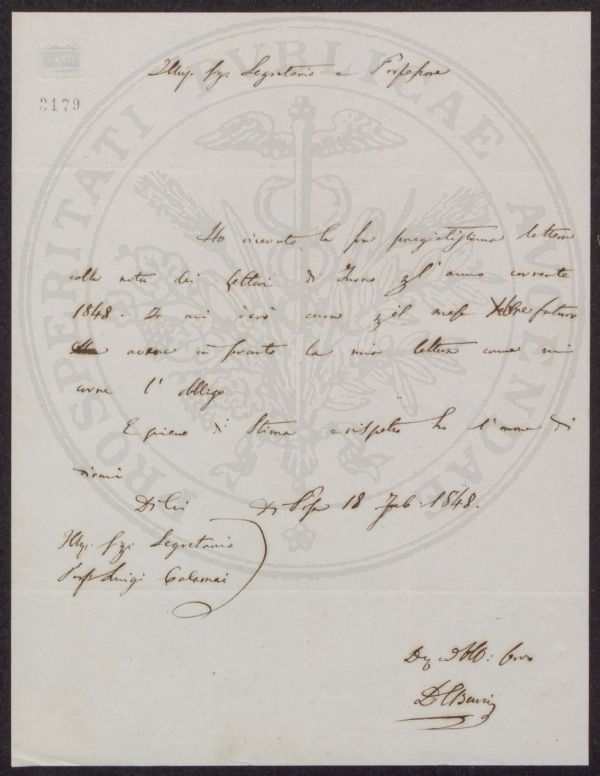 3179
PROSPERITATI PVBLICAE AVGENDAE
Illmo. Sigr. Segretario e Professore
Ho ricevuto la sua pregiatissima lettera
colla nota dei Lettori di Turno pel l'anno corrente
1848. Io mi darò cura pel mese Xbre futuro
avere in pronto la mia lettura come mi
corre l'obbligo
E pieno di Stima e rispetto ho l'onore di
dirmi
Di Lei Di Casa 18 Feb: 1848.
Illmo. Sigr. Segretario
Profr Luigi Calamai